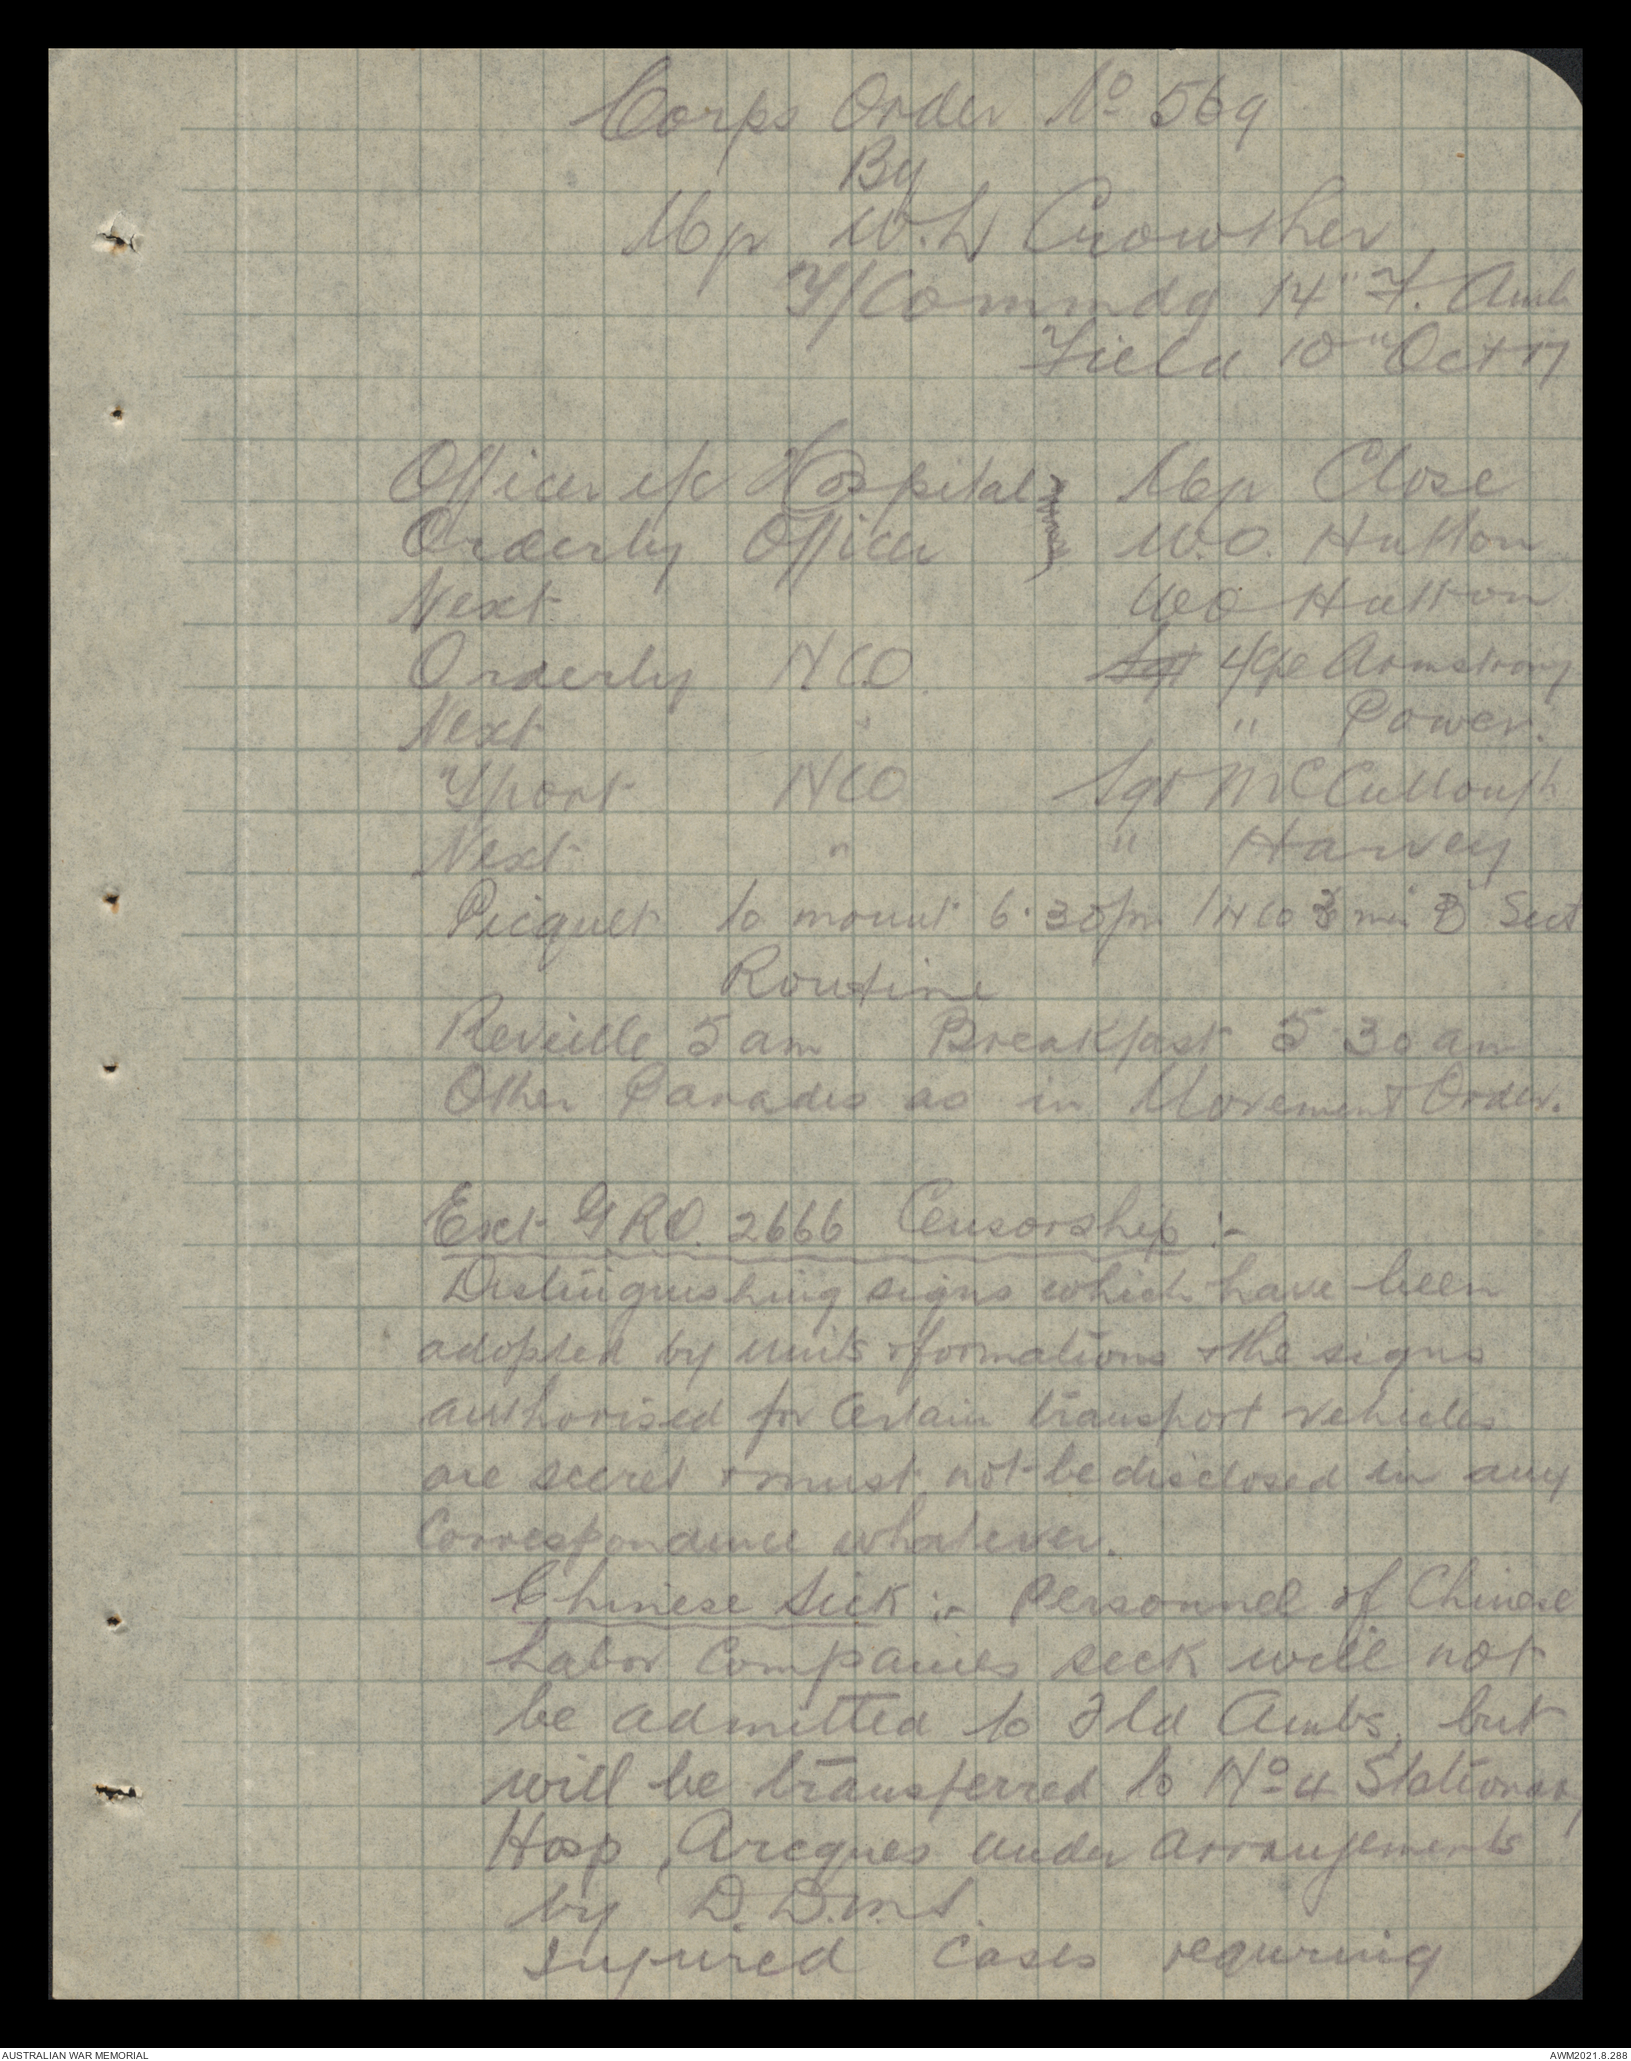 Corps Order No 569
By
Mjr W.L Crowther
T/Commdg 14" F. Amb
Field 10" Oct 17
Officer i/c Hospital } Mjr Close
Orderly Officer } W.O. Hutton
Next WO Hutton
Orderly NCO. Sgt L/Cpl Armstrong
Next " " Power.
T/port NCO Sgt McCullough
Next " " Harvey
Picquet to mount 6.30pm 1 NCO 3 men B Sect
Routine
Reveille 5 am Breakfast 5.30 am
Other Parades as in Movement Order.
Ext GRO. 2666 Censorship :-
Distinguishing signs which have been
adopted by units & formations & the signs
authorised for certain transport vehicles
are secret & must not be disclosed in any
Correspondence whatever.
Chinese Sick :- Personnel of Chinese
Labor Companies sick will not
be admitted to Fld Ambs, but
will be transferred to No 4 Stationary
Hosp, Arcques under arrangements
by D.D.M.S.
Injured cases requiring
AUSTRALIAN WAR MEMORIAL
AWM2021.8.288